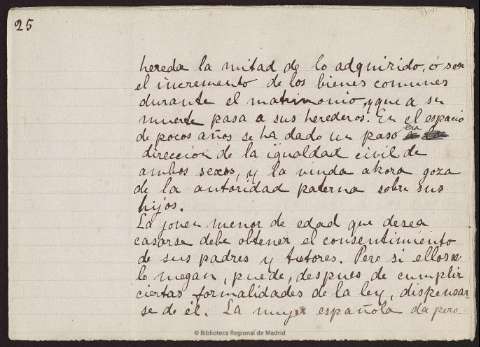 25
hereda la mitad de lo adquirido, ó sea
el incremento de los bienes comunes
durante el matrimonio, y que a su
muerte pasa a sus herederos. En el espacio
de pocos años se ha dado un paso en
direccion de la igualdad civil de
ambos sexos, y la viuda ahora goza
de la autoridad paterna sobre sus
hijos.
La joven menor de edad que desea
casarse debe obtener el consentimiento
de sus padres y tutores. Pero si ellos se
lo niegan, puede, despues de cumplir
ciertas formalidades de la ley, dispensar
se de el. La mujer española da pero
© Biblioteca Regional de Madrid